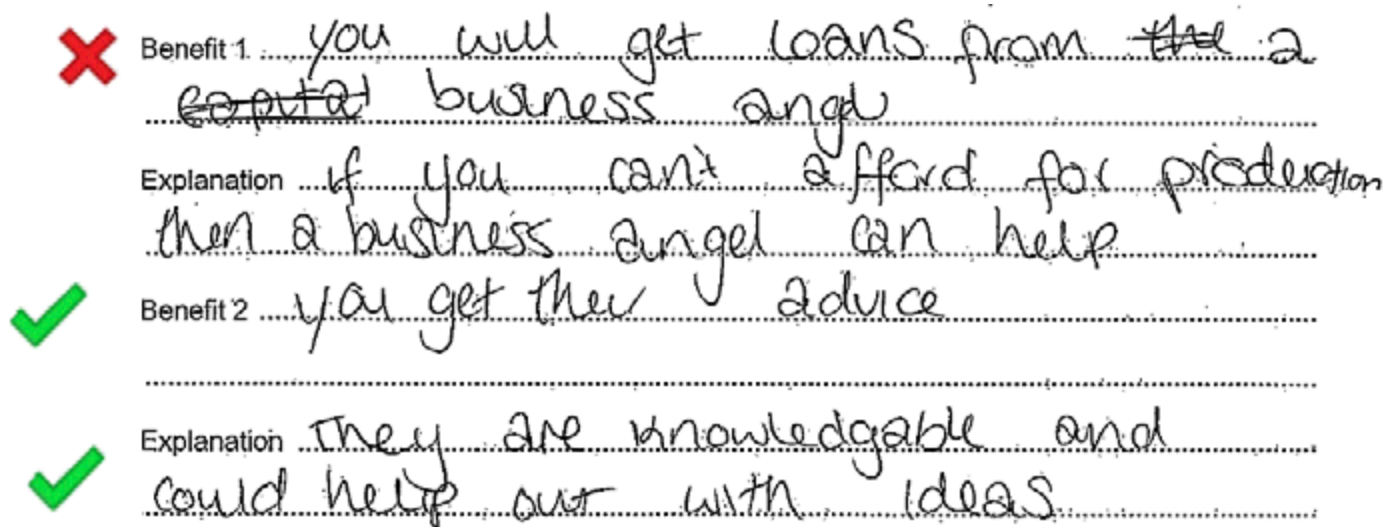 Benefit 1 you will get loans from the a
capital business angel
Explanation if you can't afford for production
then a business angel can help
Benefit 2 you get their advice
Explanation They are knowledgable and
could help out with ideas